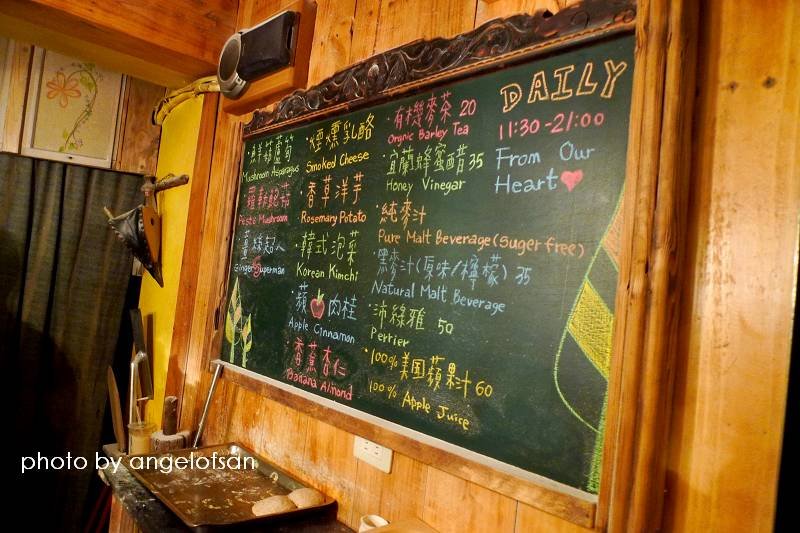 ·鮮菇蘆筍
Mushroom Asparagus
Pesto Mushroom
Ginger Superman
·煙燻乳酪
Smoked Cheese
·香草洋芋
Rosemary Potato
·韓式泡菜
Korean Kimchi
·蘋 肉桂
Apple Cinnamon
·香蕉杏仁
Banana Almond
·有機麥茶 20
Orgnic Barley Tea
·宜蘭蜂蜜醋 35
Honey Vinegar
·純麥汁
Pure Malt Beverage (Suger free)
·黑麥汁(原味/檸檬) 35
Natural Malt Beverage
·沛綠雅 50
Perrier
·100%美国蘋果汁 60
100% Apple Juice
DAILY
11:30-21:00
From Our
Heart
photo by angelofsan